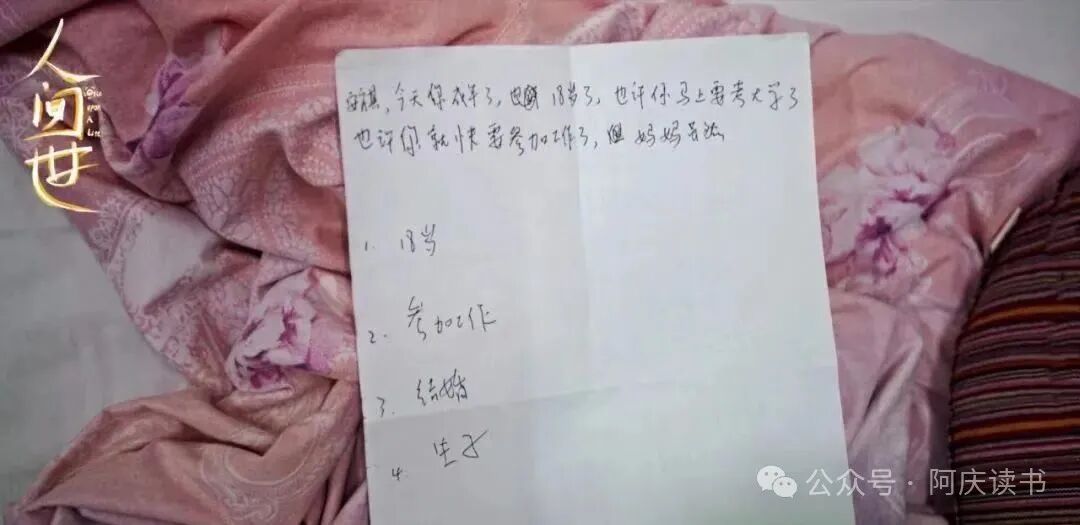 人间世
ONCE UPON A LIFE
今天你成年了，也 18岁了，也许你马上要考大学了
也许你就快要参加工作了，但妈妈无法
1. 18岁
2. 参加工作
3. 结婚
4. 生子
公众号 · 阿庆读书